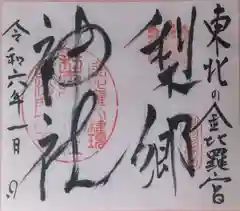 東北の金比羅宮
梨郷
神社
令和六年一月